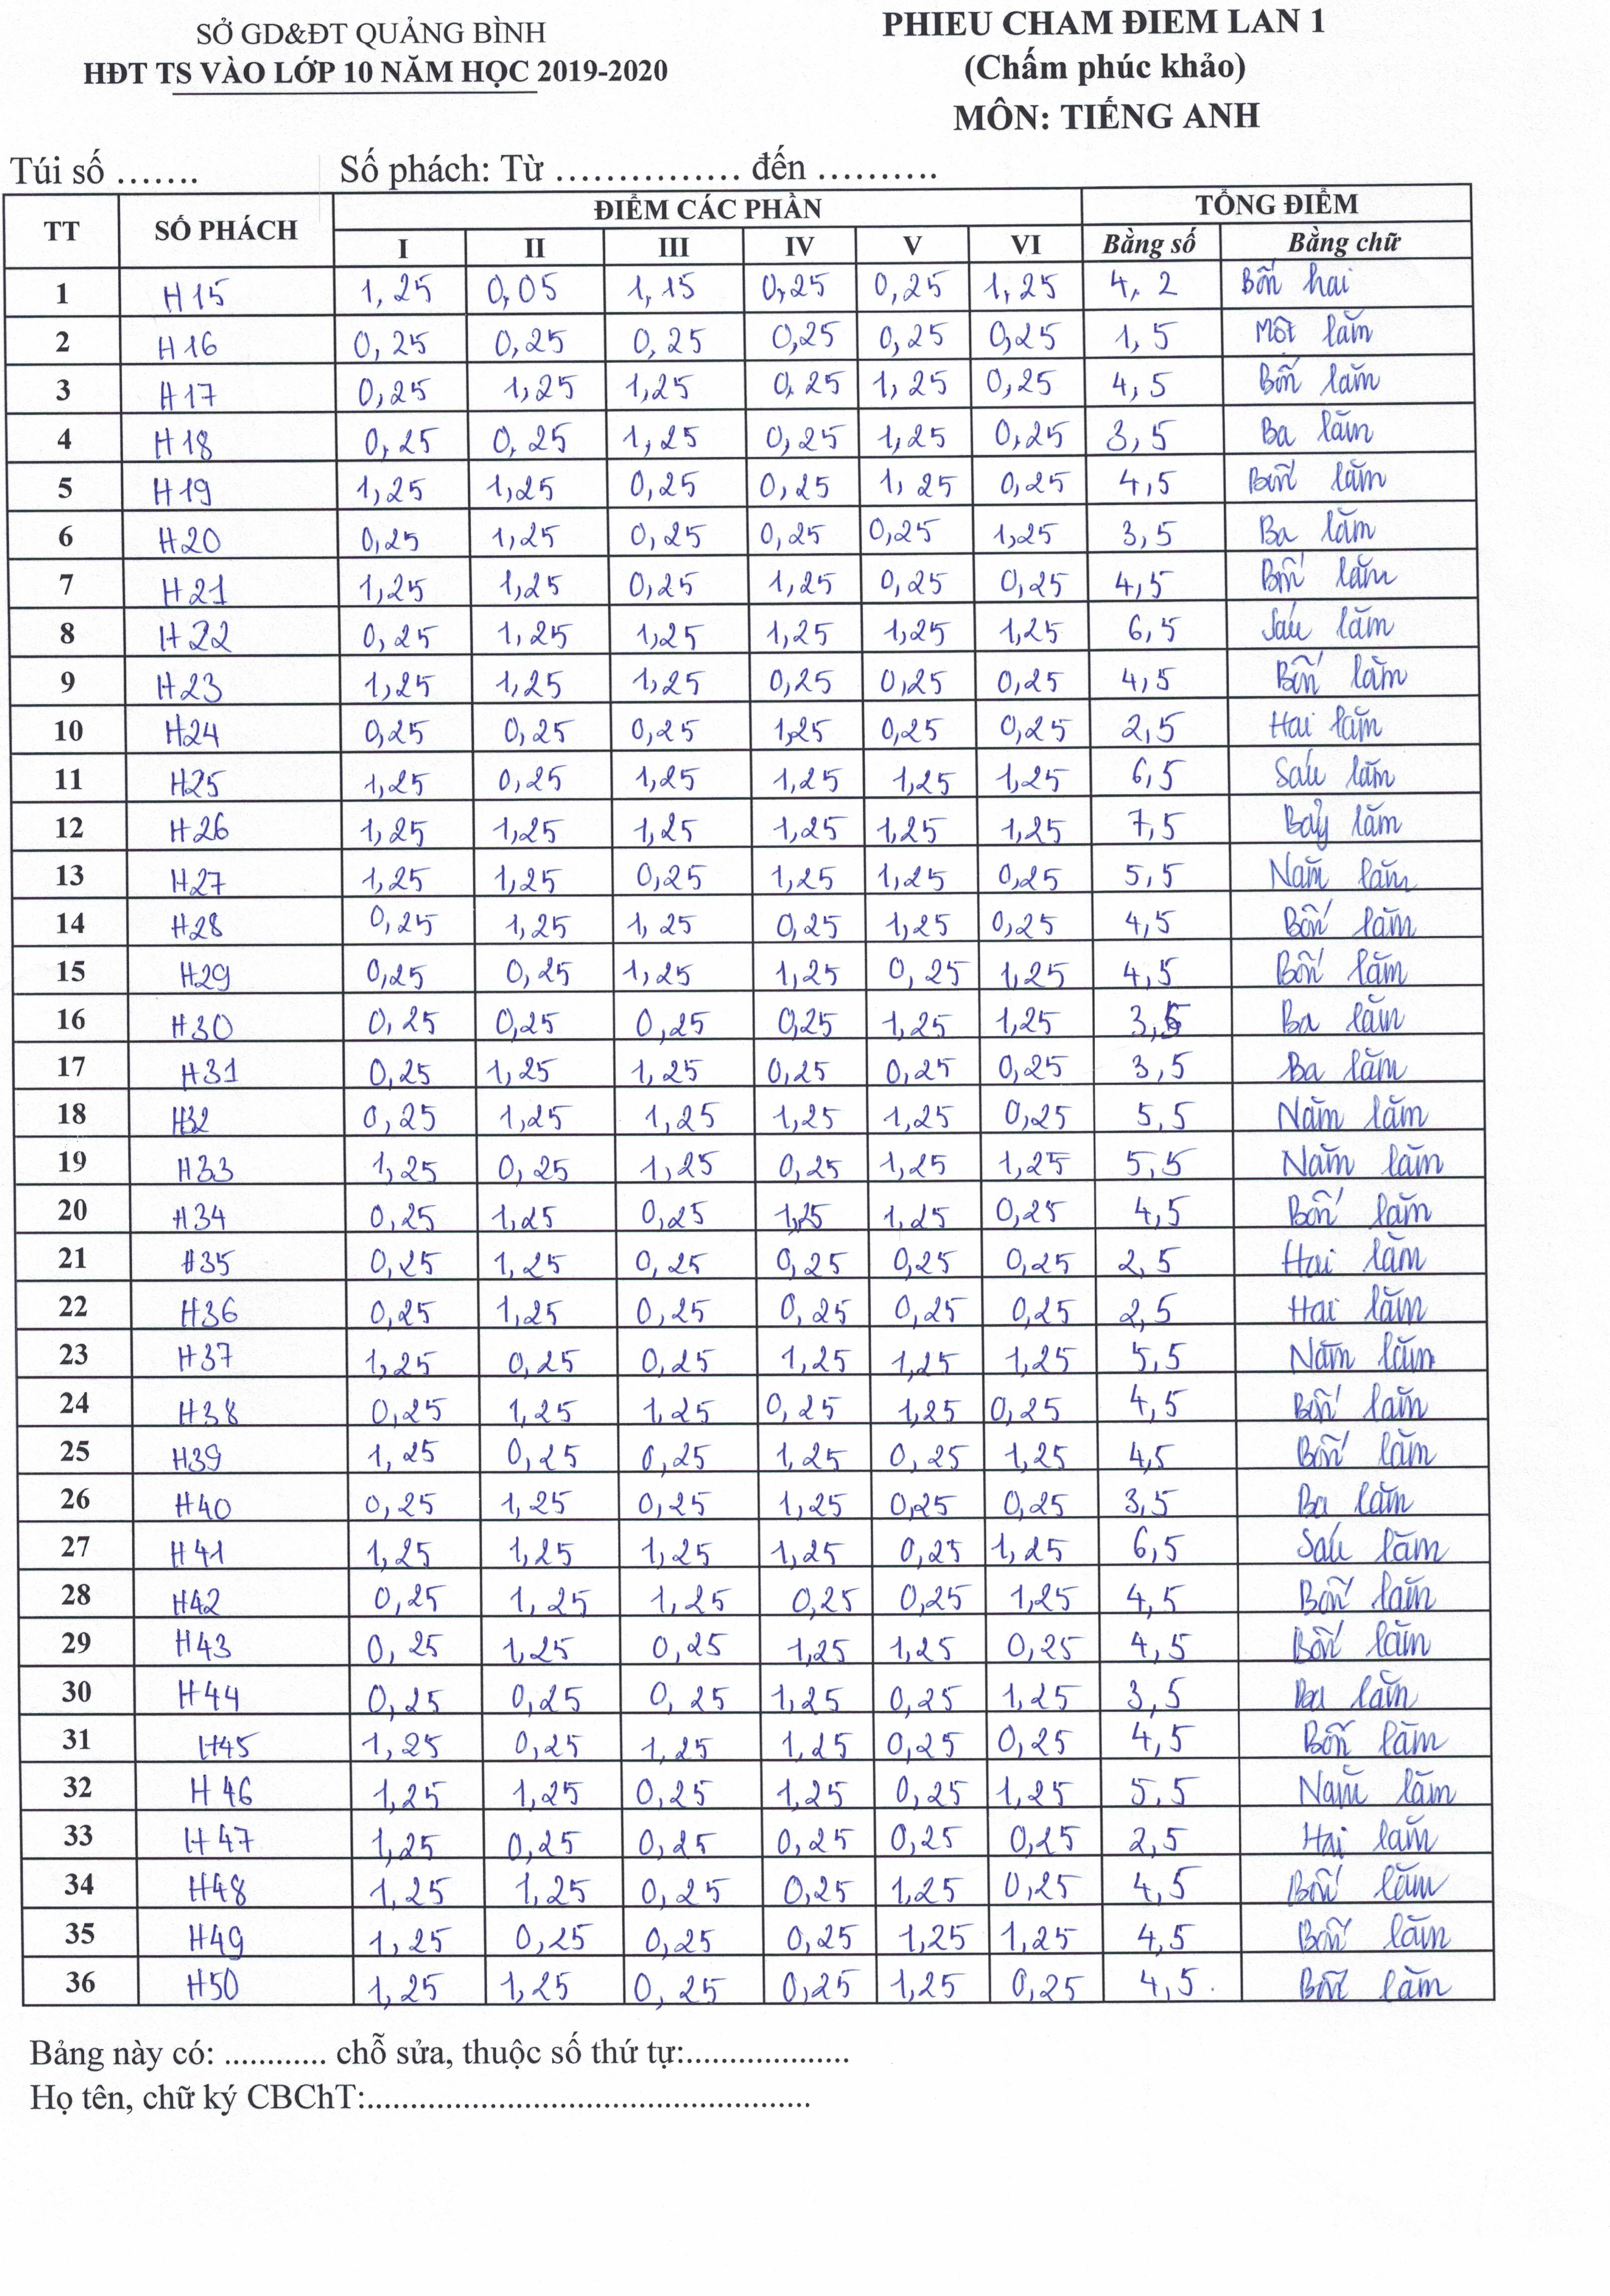 SỞ GD&ĐT QUẢNG BÌNH
HĐT TS VÀO LỚP 10 NĂM HỌC 2019-2020
PHIEU CHAM ĐIEM LAN 1
(Chấm phúc khảo)
MÔN: TIẾNG ANH
Túi số ....... Số phách: Từ ............... đến ..........
TT SỐ PHÁCH ĐIỂM CÁC PHẦN TỔNG ĐIỂM
I II III IV V VI Bằng số Bằng chữ
1 H15 1,25 0,05 1,15 0,25 0,25 1,25 4,2 Bốn hai
2 H16 0,25 0,25 0,25 0,25 0,25 0,25 1,5 Một lăm
3 H17 0,25 1,25 1,25 0,25 1,25 0,25 4,5 Bốn lăm
4 H18 0,25 0,25 1,25 0,25 1,25 0,25 3,5 Ba lăm
5 H19 1,25 1,25 0,25 0,25 1,25 0,25 4,5 Bốn lăm
6 H20 0,25 1,25 0,25 0,25 0,25 1,25 3,5 Ba lăm
7 H21 1,25 1,25 0,25 1,25 0,25 0,25 4,5 Bốn lăm
8 H22 0,25 1,25 1,25 1,25 1,25 1,25 6,5 Sáu lăm
9 H23 1,25 1,25 1,25 0,25 0,25 0,25 4,5 Bốn lăm
10 H24 0,25 0,25 0,25 1,25 0,25 0,25 2,5 Hai lăm
11 H25 1,25 0,25 1,25 1,25 1,25 1,25 6,5 Sáu lăm
12 H26 1,25 1,25 1,25 1,25 1,25 1,25 7,5 Bảy lăm
13 H27 1,25 1,25 0,25 1,25 1,25 0,25 5,5 Năm lăm
14 H28 0,25 1,25 1,25 0,25 1,25 0,25 4,5 Bốn lăm
15 H29 0,25 0,25 1,25 1,25 0,25 1,25 4,5 Bốn lăm
16 H30 0,25 0,25 0,25 0,25 1,25 1,25 3,5 Ba lăm
17 H31 0,25 1,25 1,25 0,25 0,25 0,25 3,5 Ba lăm
18 H32 0,25 1,25 1,25 1,25 1,25 0,25 5,5 Năm lăm
19 H33 1,25 0,25 1,25 0,25 1,25 1,25 5,5 Năm lăm
20 H34 0,25 1,25 0,25 1,25 1,25 0,25 4,5 Bốn lăm
21 H35 0,25 1,25 0,25 0,25 0,25 0,25 2,5 Hai lăm
22 H36 0,25 1,25 0,25 0,25 0,25 0,25 2,5 Hai lăm
23 H37 1,25 0,25 0,25 1,25 1,25 1,25 5,5 Năm lăm
24 H38 0,25 1,25 1,25 0,25 1,25 0,25 4,5 Bốn lăm
25 H39 1,25 0,25 0,25 1,25 0,25 1,25 4,5 Bốn lăm
26 H40 0,25 1,25 0,25 1,25 0,25 0,25 3,5 Ba lăm
27 H41 1,25 1,25 1,25 1,25 0,25 1,25 6,5 Sáu lăm
28 H42 0,25 1,25 1,25 0,25 0,25 1,25 4,5 Bốn lăm
29 H43 0,25 1,25 0,25 1,25 1,25 0,25 4,5 Bốn lăm
30 H44 0,25 0,25 0,25 1,25 0,25 1,25 3,5 Ba lăm
31 H45 1,25 0,25 1,25 1,25 0,25 0,25 4,5 Bốn lăm
32 H46 1,25 1,25 0,25 1,25 0,25 1,25 5,5 Năm lăm
33 H47 1,25 0,25 0,25 0,25 0,25 0,25 2,5 Hai lăm
34 H48 1,25 1,25 0,25 0,25 1,25 0,25 4,5 Bốn lăm
35 H49 1,25 0,25 0,25 0,25 1,25 1,25 4,5 Bốn lăm
36 H50 1,25 1,25 0,25 0,25 1,25 0,25 4,5 Bốn lăm
Bảng này có: ............ chỗ sửa, thuộc số thứ tự:...................
Họ tên, chữ ký CBChT:...................................................